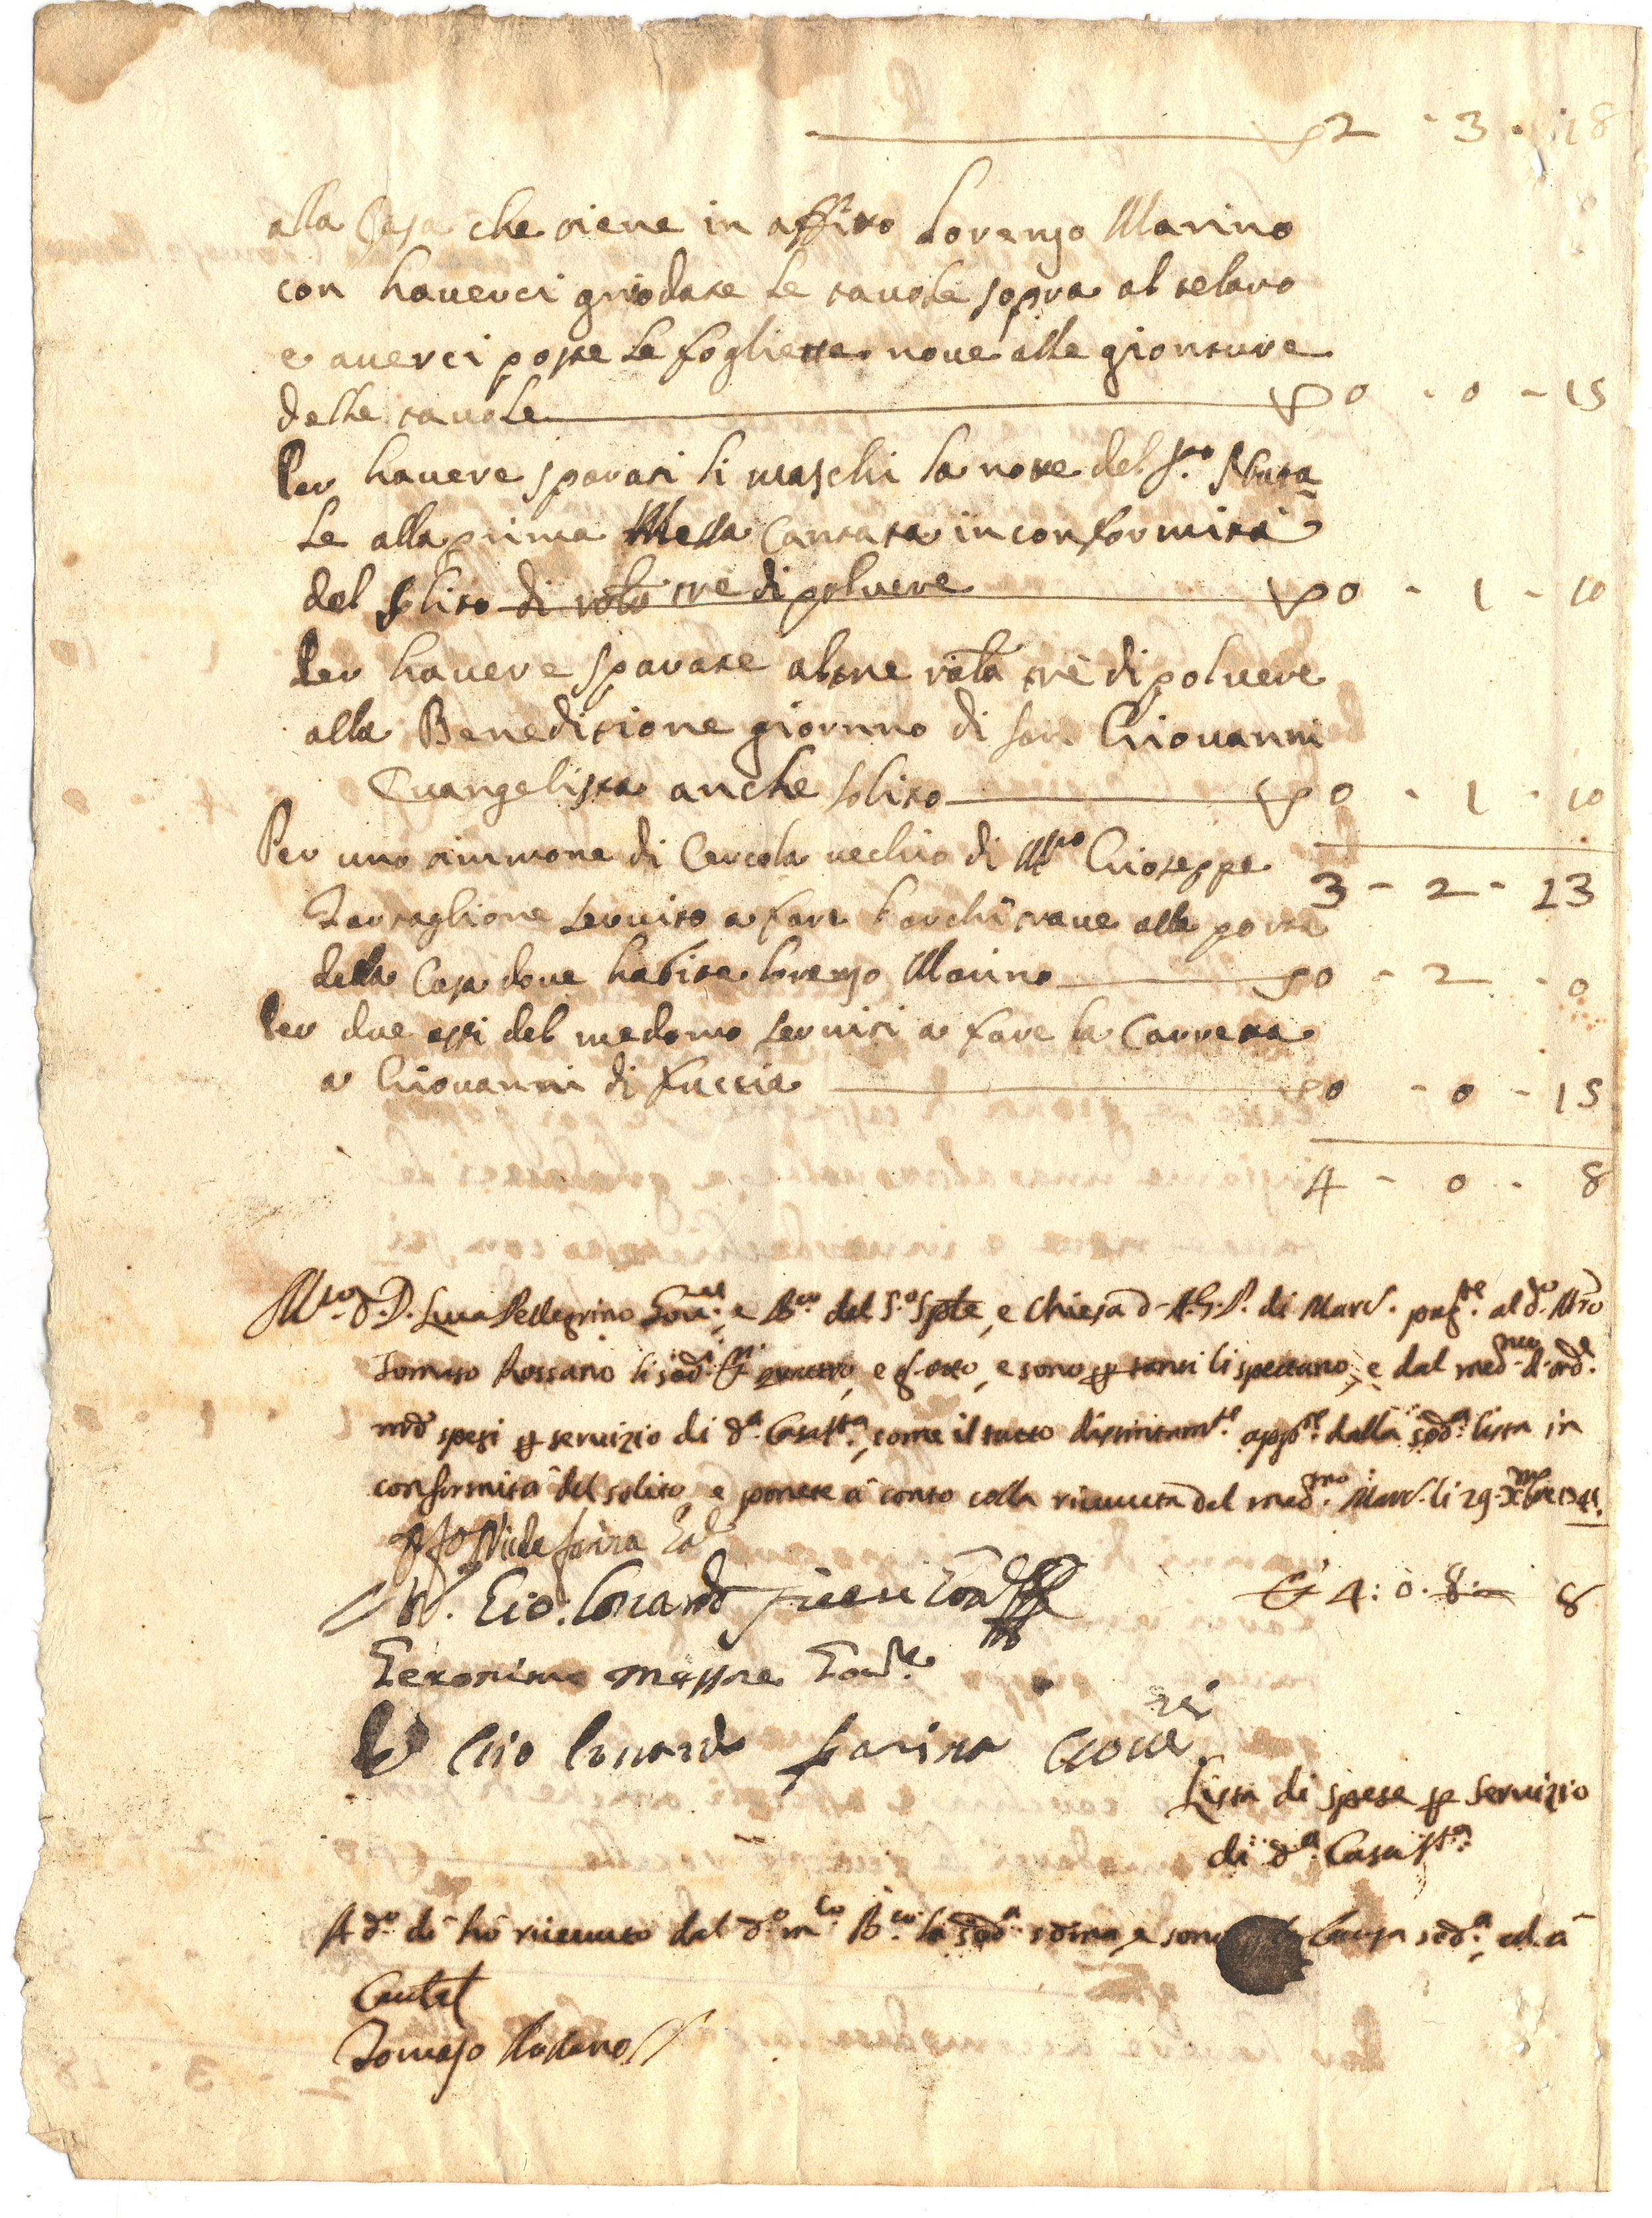 2 - 3 - 18
alla Casa che tiene in affitto Lorenzo Marino
con haverci griodate le tavole sopra al telaro
e averci poste le fogliette nove alle gionture
delle tavole 0 - 0 - 15
Per havere sparati li maschi la notte del S.to Nata
le alla prima Messa Cantata in conformità
del solito di rota tre di polvere 0 - 1 - 10
Per havere sparate altre rota trè di polvere
alla Beneditione giornno di San Giovanni
Evangelista anche solito 0 - 1 - 10
Per uno timmone di Cercola vechio di M.ro Gioseppe
3 - 2 - 13
Tartaglione servito a fare l'architrave alla porta
della Casa dove habita Lorenzo Marino 0 - 2 - 0
Per due assi del medemo serviti a fare la Carretta
a Giovanni di Fuccia 0 - 0 - 15
4 - 0 - 8
D. Luca Pellegrino e del S.to Sple, e Chiesa di A.G.P. di Marc. pag.te al d.o Mro
Tomaso Rossano li sod.i quattro, e g. otto, e sono p tanti li spettano, e dal med.mo d'ord.e
nrō spesi p servizio di d.a Casa S.ta, come il tutto distintam.te app.e dalla sod.a lista in
conformità del solito, e ponete à conto colla ricevuta del med.mo Marc. li 29 Xbre
Farina
Gio: Lonardo
4: 0. 8 8
Geronimo Massre
Gio Lonardo Farina
Lista di spese p servizio
di d.a Casa S.ta
A d.o dì hò ricevuto dal d.o m.co la sod.a soma, e sono Causa sod.a, ed à
Cautel
Tomaso Rossano